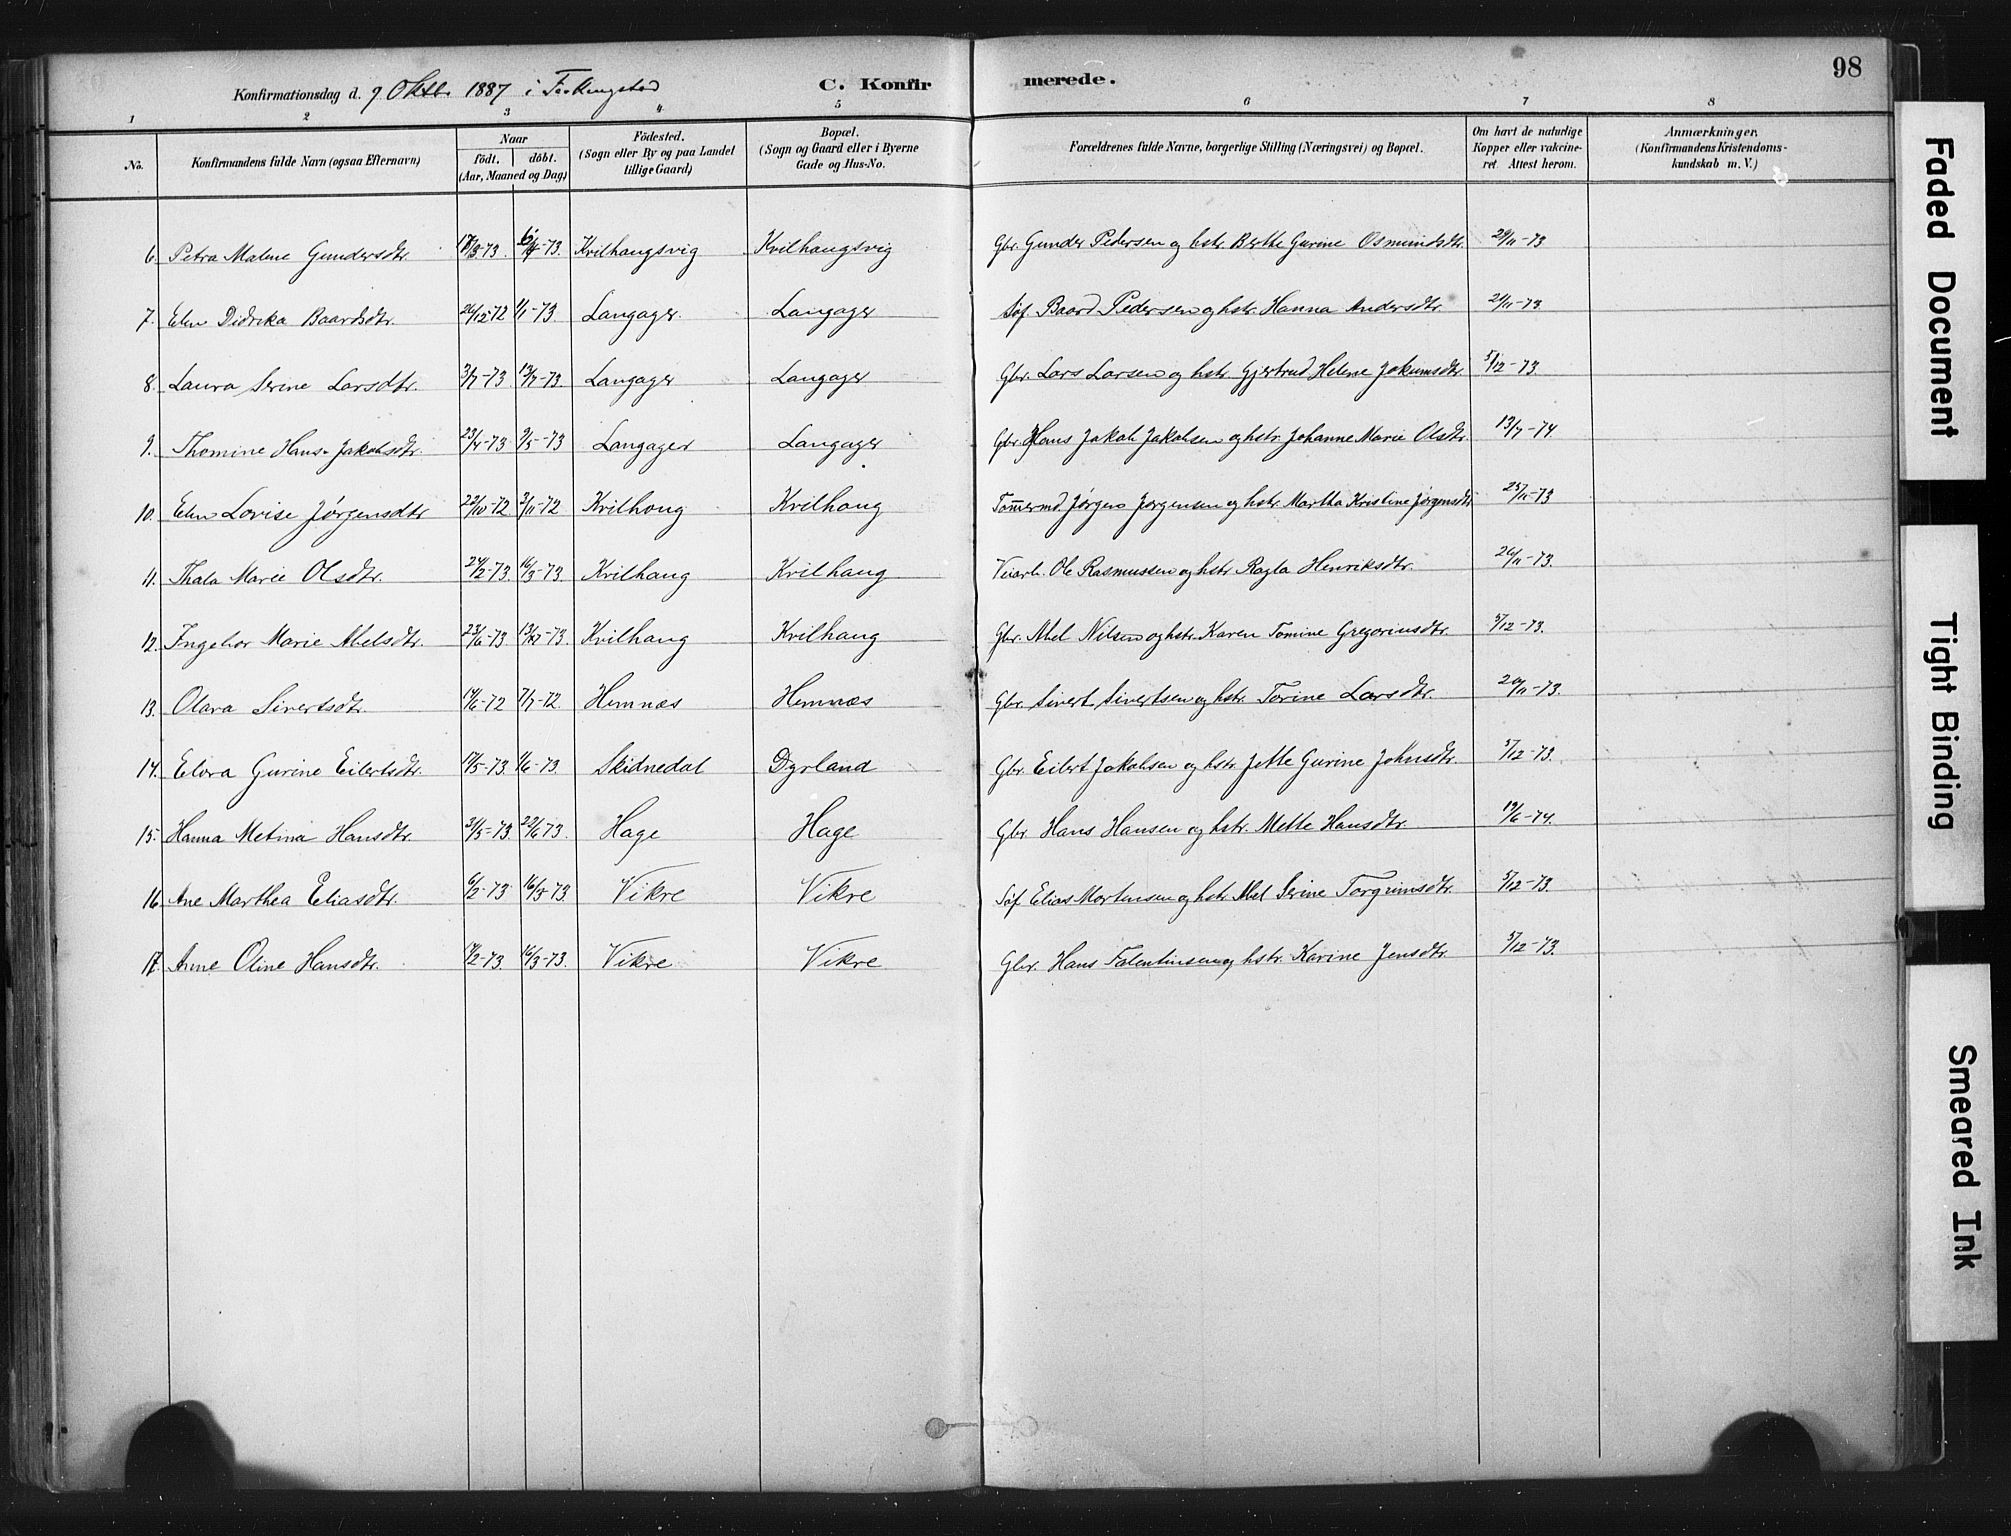 98
Konfirmationsdag d. 9 Oktb. 1887 i Falkingstad C. Konfirmerede.
1 2 3 4 5 6 7 8
No.
Konfirmandens fulde Navn (ogsaa Efternavn)
Naar
födt. döbt.
(Aar, Maaned og Dag)
Födested.
(Sogn eller By og paa Landet
tillige Gaard)
Bopæl.
(Sogn og Gaard eller i Byerne
Gade og Hus-No.
Forældrenes fulde Navne, borgerlige Stilling (Næringsvei) og Bopæl.
Om havt de naturlige
Kopper eller vakcine-
ret Attest herom.
Anmærkninger.
(Konfirmandens Kristendoms-
kundskab m. V.)
6. Petra Malene Gundersdtr. Kvilhaugsvig Kvilhaugsvig Gbr. Gunder Pedersen og hstr. Berthe Gurine Osmundsdtr. 29/11-73
7. Elen Didrika Baardsdtr. 26/12-72 1/1-73. Langager Langager Søf. Baard Pedersen og hstr. Hanna Andersdtr. 29/11-73.
8. Laura Serine Larsdtr. 3/7-73 13/7-73. Langager Langager Gbr. Lars Larsen og hstr. Gjertrud Helene Jokumsdtr. 5/12-73.
9. Thomine Hans-Jakobsdtr. 23/4-73 9/5-73 Langager Langager Gbr. Hans Jakob Jakobsen og hstr. Johanne Marie Olsdtr. 13/7-74
10. Elen Lovise Jørgensdtr. 22/10-72 3/11-72 Kvilhaug Kvilhaug Tømermd. Jørgen Jørgensen og hstr. Martha Kristine Jørgensdtr. 25/11-73
11. Thala Marie Olsdtr. 24/2-73 16/3-73. Kvilhaug Kvilhaug Veiarb. Ole Rasmussen og hstr. Ragla Henriksdtr. 26/11-73.
12. Ingebor Marie Abelsdtr. 23/6-73. 13/7-73. Kvilhaug Kvilhaug Gbr. Abel Nilsen og hstr. Karen Tomine Gregoriusdtr. 5/12-73.
13. Olava Sivertsdtr. 14/6-72 7/7-72. Hemnæs Hemnæs Gbr. Sivert Sivertsen og hstr. Torine Larsdtr. 20/11-73.
14. Elora Gurine Eilertsdtr. 17/5-73. 1/6-73. Skidnedal Dyrland Gbr. Eilert Jakobsen og hstr. Jette Gurine Johnsdtr. 5/12-73.
15. Hanna Metina Hansdtr. 31/5-73. 22/6 73. Hage Hage Gbr. Hans Hansen og hstr. Mette Hansdtr. 19/6-74.
16. Ane Marthea Eliasdtr. 6/2-73. 16/3-73. Vikre Vikre Søf. Elias Mortensen og hstr. Abel Serine Torgrimsdtr. 5/12-73.
17. Anne Oline Hansdtr. 14/2-73. 16/3-73. Vikre Vikre Gbr. Hans Falentinsen og hstr. Karine Jensdtr. 5/12-73.
Faded Document
Tight Binding
Smeared Ink